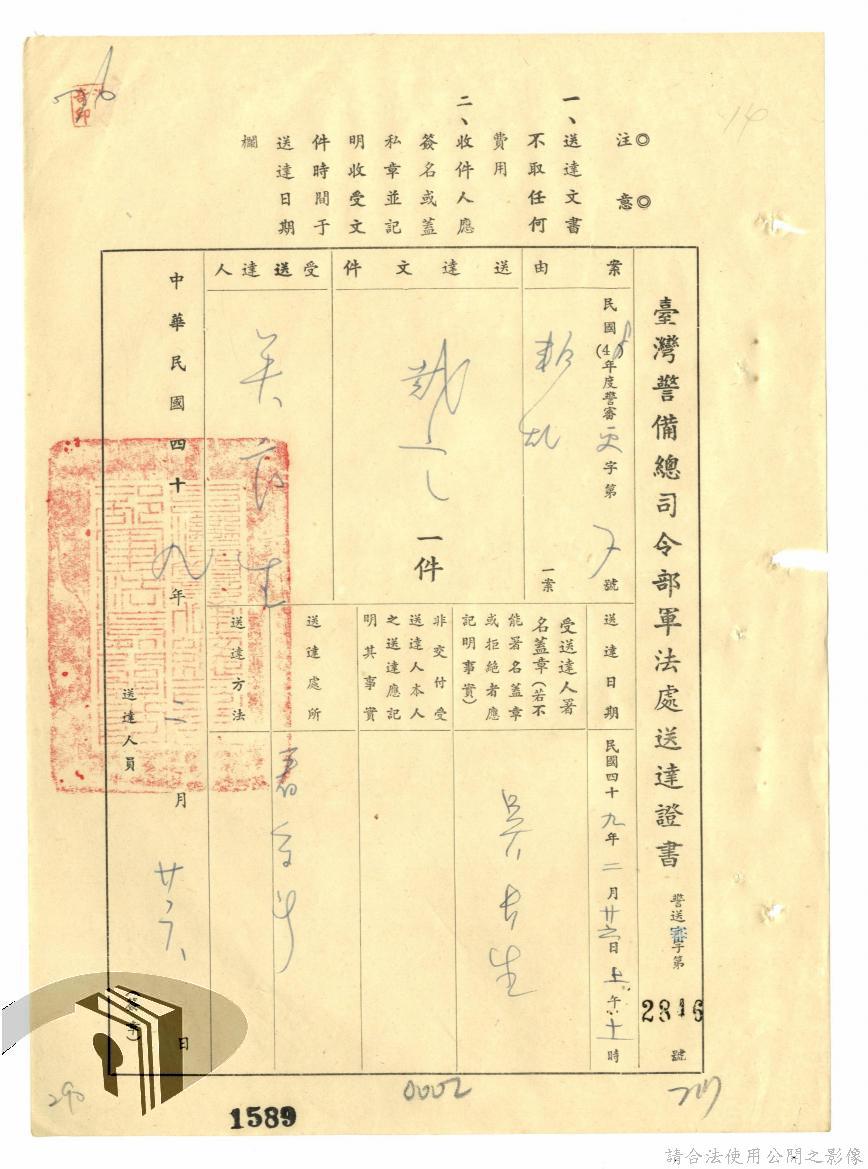 14
◎注意◎
一、送達文書
不取任何
費用
二、收件人應
簽名或蓋
私章並記
明收受文
件時間于
送達日期
欄
臺灣警備總司令部軍法處送達證書
警送審字第2846號
案由
民國(48)年度警審更字第7號
叛亂
一案
送達文件
一件
受送達人
吳
生
送達日期
民國四十九年二月廿六日上午十時
受送達人署
名蓋章(若不
能署名蓋章
或拒絕者應
記明事實)
吳 生
非交付受
送達人本人
之送達應記
明其事實
送達處所
看守所
送達方法
中華民國四十九年二月廿六日
送達人員
290
1589
0002
請合法使用公開之影像